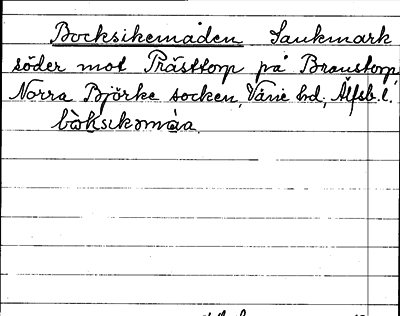 Bocksikemaden Sankmark
söder mot Prästtorp på Branstorp,
Norra Björke socken, Väne hd, Älfsb. l.
bòksıkəmàa.